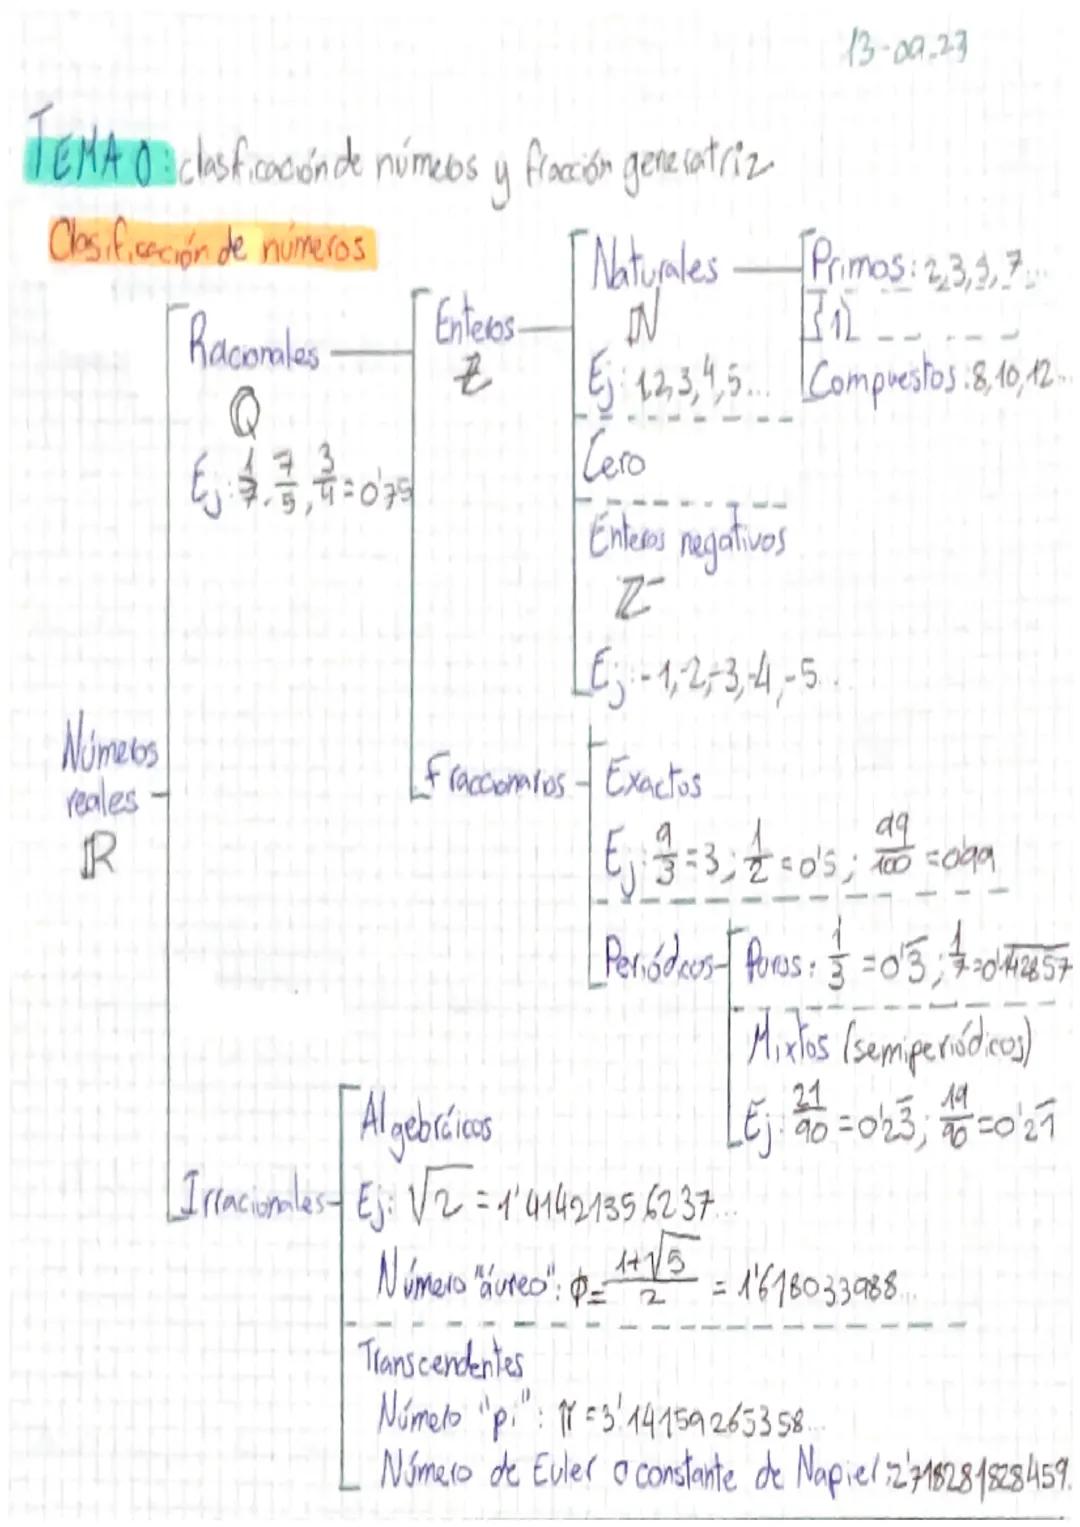 13-09-23
TEMA 0: clasificación de números y fracción generatriz
Clasificación de números
Números reales ℝ
Racionales
Q
Ej: 1/7, 7/5, 3/4 = 0'75
Enteros
Z
Naturales
ℕ
Ej: 1,2,3,4,5...
Primos: 2,3,5,7...
{1}
Compuestos: 8,10,12...
Cero
Enteros negativos
Z⁻
Ej: -1,-2,-3,-4,-5...
Fraccionarios
Exactos
Ej: 9/3 = 3; 1/2 = 0'5; 99/100 = 0'99
Periódicos
Puros: 1/3 = 0'3̅; 1/7 = 0'1̅4̅2̅8̅5̅7̅
Mixtos (semiperiódicos)
Ej: 21/90 = 0'23̅; 19/90 = 0'21̅
Irracionales
Algebráicos
Ej: √2 = 1'41421356237...
Número "áureo": ϕ = (1+√5)/2 = 1'618033988...
Transcendentes
Número "pi": π = 3'14159265358...
Número de Euler o constante de Napier: 2'718281828459.